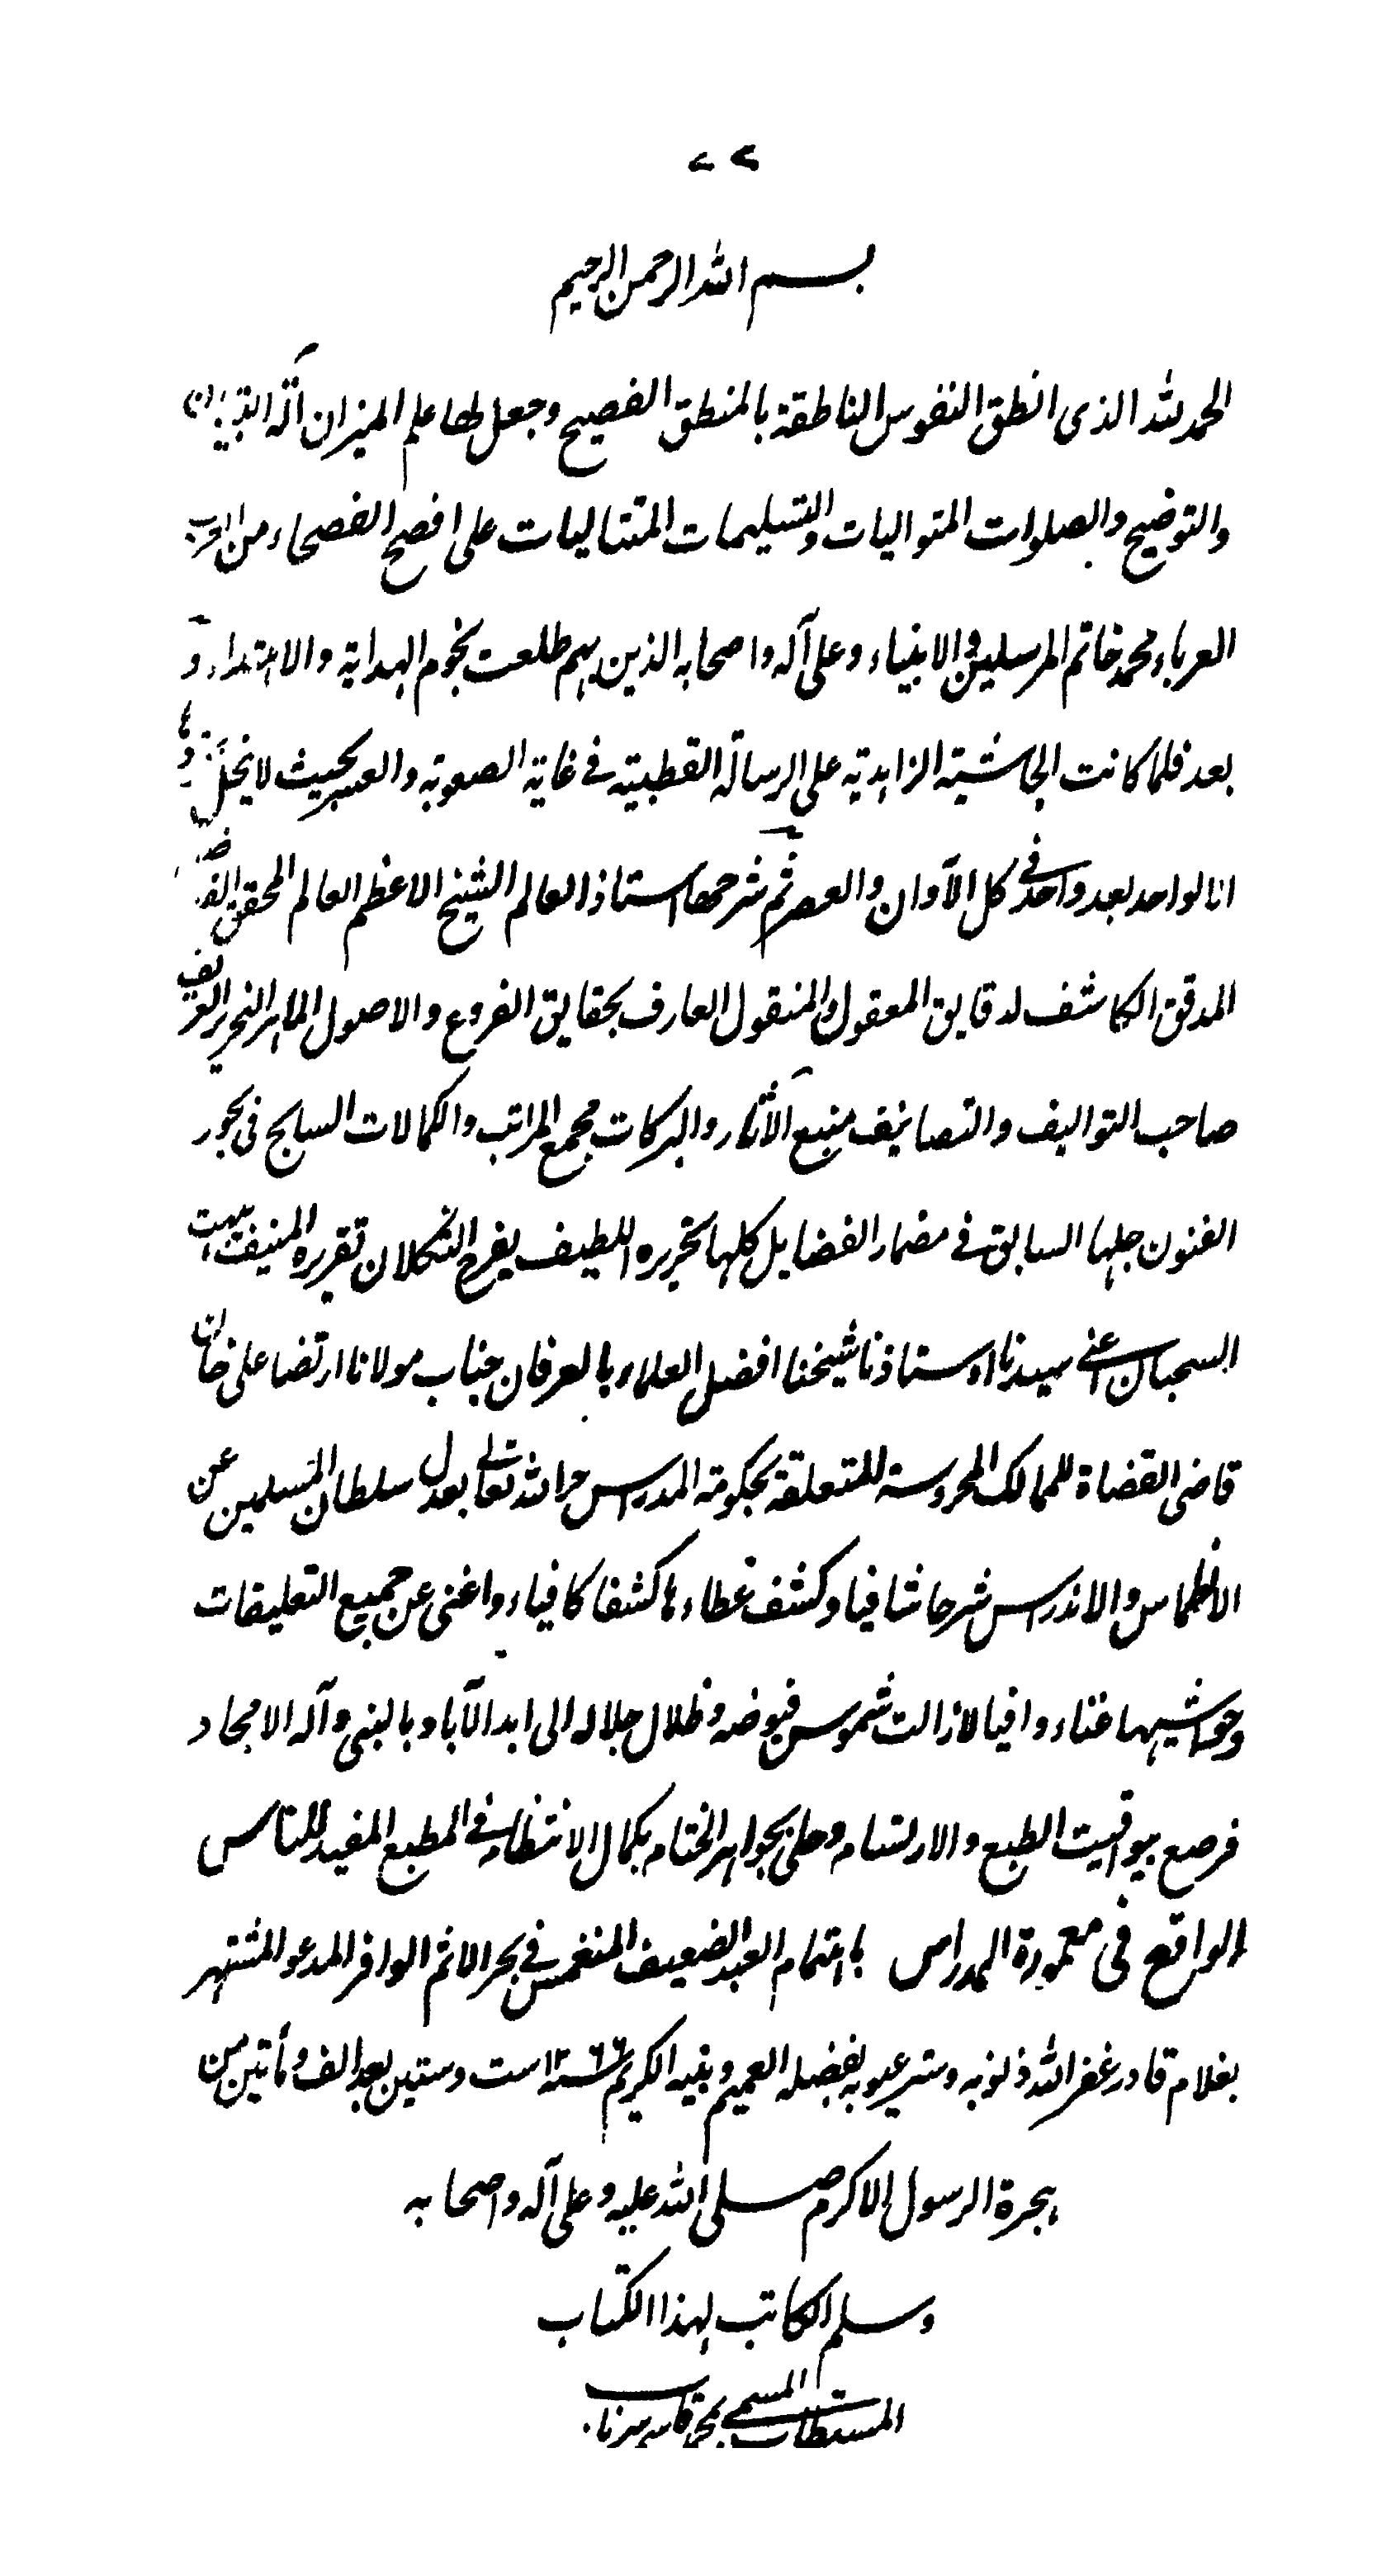 بسم الله الرحمن الرحيم
الحمد لله الذى انطق النفوس الناطقة بالمنطق الفصيح وجعل لها علم الميزان آلة التبيان
والتوضيح والصلوات المتواليات والتسليمات المتتاليات على افصح الفصحاء من العرب
العرباء محمد خاتم المرسلين والانبياء وعلى آله واصحابه الذين بهم طلعت نجوم الهداية والاهتداء و
بعد فلما كانت الحاشية الزاهدية على الرسالة القطبية فى غاية الصعوبة والعسر بحيث لا ينحل
الا لواحد بعد واحد فى كل الآوان والعصر ثم شرحها استاذ العالم الشيخ الاعظم العالم المحقق
المدقق الكاشف لدقايق المعقول والمنقول العارف بحقايق الفروع والاصول الماهر النحرير
صاحب التواليف والتصانيف منبع الآثار والبركات مجمع المراتب والكمالات السابح فى بحور
الفنون جلها السابق فى مضمار الفضايل كلها تحريره اللطيف يفرح الثكلان تقريره المنيف يبهت
السحبان اعنى سيدنا اوستاذنا شيخنا افضل العلماء بالعرفان جناب مولانا ارتضا على خان
قاضى القضاة للممالك المحروسة للمتعلقة بحكومة المدراس حرا لله تعالى بعدل سلطان المسلمين عن
الانطماس والاندراس شرحا شافيا وكشف غطاءها كشفا كافيا واغنى عن جميع التعليقات
وحواشيها غناء وافيا لا زالت شموس فيوضه وظلال جلاله الى ابد الآباد بالنبى وآله الامجاد
فرصع بيواقيت الطبع والارتسام وحلى بجواهر الختام بكمال الانتظام فى المطبع المفيد للناس
الواقع فى معمورة المدراس باهتمام العبد الضعيف المنغمس فى بحر الاثم الوافر المدعو المشتهر
بغلام قادر غفر الله ذنوبه وستر عيوبه بفضله العميم ونبيه الكريم سنة ١٢٦٦ ست وستين بعد الف ومأتين من
هجرة الرسول الاكرم صلى الله عليه وعلى آله واصحابه
وسلم الكاتب لهذا الكتاب
المستطاب المسمى